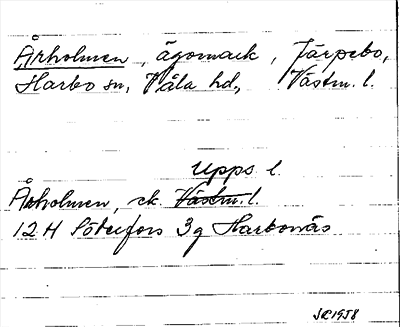 Årholmen, ägomark, Järpebo,
Harbo sn, Våla hd., Västm. l.
Upps l.
Årholmen, ek. Västm. l.
12 H Söderfors 3g Harbonäs
SR 1958